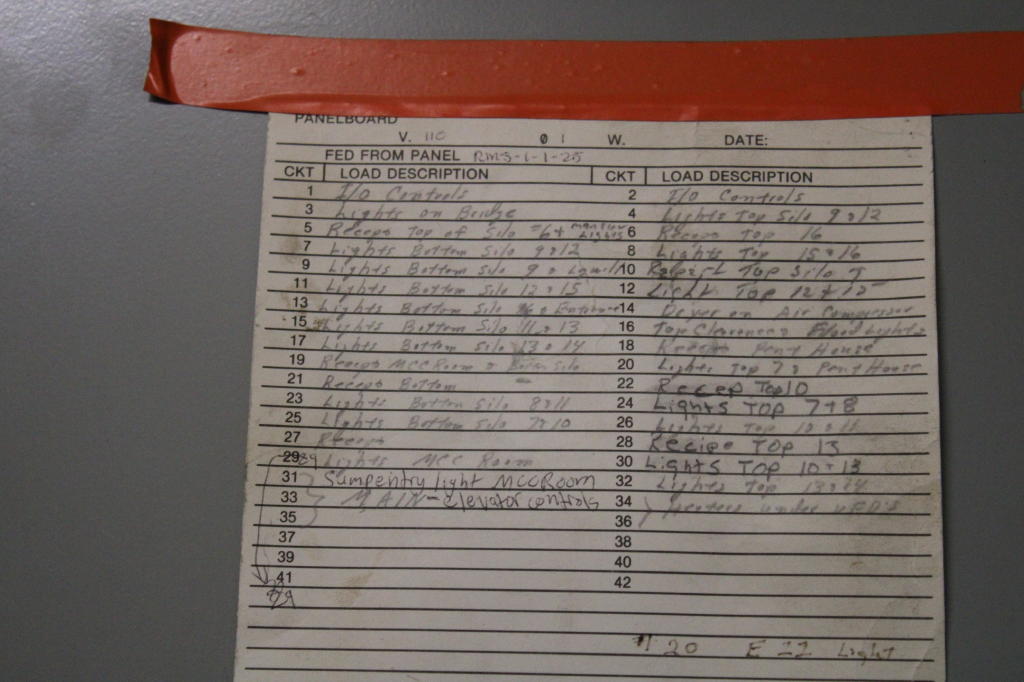 PANELBOARD
V. 110 Ø 1 W. DATE:
FED FROM PANEL RMS-1-1-25
CKT LOAD DESCRIPTION CKT LOAD DESCRIPTION
1 I/O Controls 2 I/O Controls
3 Lights on Bridge 4 Lights Top Silo 9 & 12
5 Recept Top of Silo 6 Recept Top 16
7 Lights Bottom Silo 9 & 12 8 Lights Top 15 & 16
9 Lights Bottom Silo 9 & 10 Top Silo
11 Lights Bottom Silo 12 & 15 12 Light Top 12 +
13 Lights Bottom Silo 16 & Entrance 14 Dryer on Air Compressor
15 Lights Bottom Silo 11 & 13 16 Top Clearences Flood Lights
17 Lights Bottom Silo 13 & 14 18 Recept Pent House
19 Recept MCC Room & Silo 20 Lights Top 7 & Pent House
21 Recept Bottom 22 Recep Top 10
23 Lights Bottom Silo 8 & 11 24 Lights TOP 7+8
25 Lights Bottom Silo 7 & 10 26 Lights Top
27 Recept 28 Recipe TOP 13
29 Lights MCC Room 30 Lights TOP 10+13
31 Sump entry light MCC Room 32 Lights Top
33 MAIN - elevator controls 34 Heaters under VFD's
35 36
37 38
39 40
41 42
20 E 22 Light